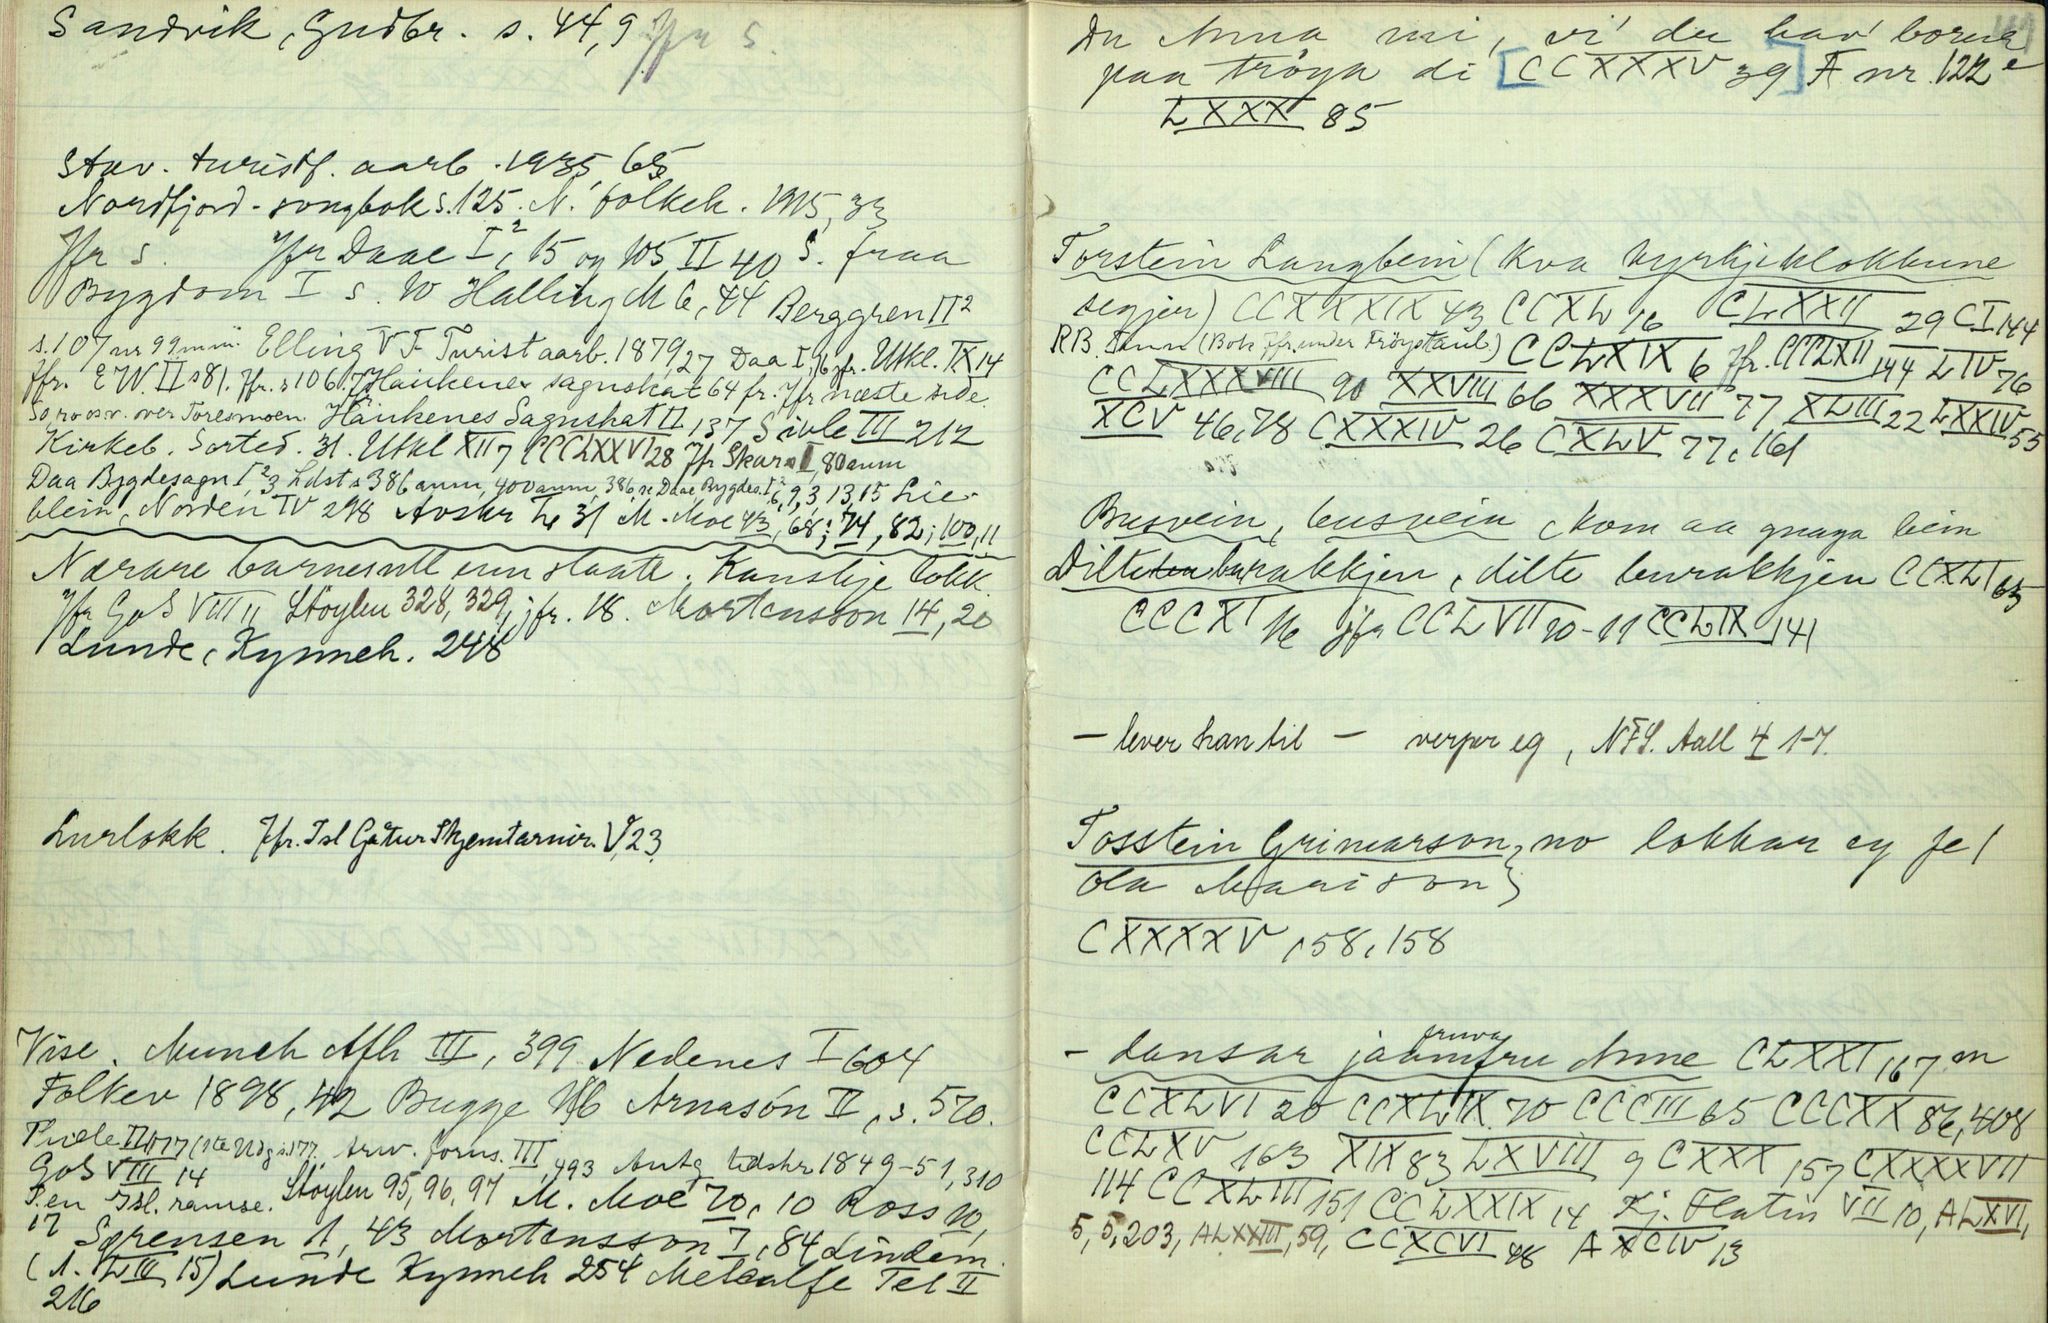 Sandvik, Gudbr. s. 44,9 Jfr s.
Stav. turistf. aarb. 1935, 65
Nordfjord-songbok s. 125. N. folkeh. 1915, 33
Jfr s. Jfr Daae I², 15 og 105 II 40 S. fraa
Bygdom I s. 10 Halling M 6, 44 Berggren II²
s. 107 nr 99 Elling V F Turistaarb. 1879, 27 Daa I, jfr. Utkl. IX 14
Jfr. E W. II s 81. Jfr. s 106. Haukenes sagnskat 64 fr. Jfr næste side
So ro osv. over Toresmoen. Haukenes Sagnskat II 137 Sivle III 212
Kirkeb. Sorted. 31. Utkl XII 7 CCCLXXVI 28 Jfr Skar I, 80 anm
Daa Bygdesagn I², 3 Ldst s 386 anm, 400 anm, 386 Daae, Bygdes. I² 6, 9, 3, 13, 15 Lie-
blein, Norden IV 298 Avskr L 31 M. Moe 43, 68; 74, 82; 100, 11
Nærare barnesull enn slaatt. Kanskje lokk.
Jfr GoS VIII 11 Støylen 328, 329, jfr. 18. Mortensson 14, 20
Lunde, Kynneh. 248
Lurlokk. Jfr. Isl Gåtur Skjemtarnir. V, 23
Vise. Munch Afh III, 399 Nedenes I 604
Folkev 1898, 42 Bugge Arnasón II, s. 570.
Arw. forns. III, 493 Antq tidskr 1849-51, 310
GoS VIII 14
P. en Isl. ramse. Støylen 95, 96, 97 M. Moe 70, 10 Ross 10,
17 Sørensen 1, 43 Mortensson 7, 84 Lindem.
(A. LIII 15) Lunde Kynneh 254 Metcalfe Tel II
216
Du Anna mi, vi' du hav' borna
paa trøya di [CCXXXV 39] A nr. 122 e
LXXX 85
Torstein Langbein (Kva kyrkjeklokkune
segjer) CCXXXXIX 43 CCXL 16 CLXXII 29 CI 144
R.B. (Bok Jfr. under Frøystaul.) CCLXIX 6 Jfr. CCCLXII 144 LIV 76
CCLXXXVIII 90 XXVIII 66 XXXVII 77 XLIII 22 LXXIV 55
XCV 46, 78 CXXXIV 26 CXLV 77, 161
Busvein, busvein, kom aa gnaga bein
Dilte burakkjen, dilte burakkjen CCXLI 65
CCCXI 16 jfr CCLVII 10-11 CCLIX 141
- lever han til - verper eg, NFS. Aall 4 1-7.
Tosstein Grimarson, no lokkar eg fe /
Ola Marison}
CXXXXV, 58, 158
- dansar jaamfru fruva Anne CLXXI 167 m
CCXLVI 20 CCXLIX 70 CCCIII 65 CCCXX 86, 408
CCLXV 163 XIX 83 LXVIII 9 CXXX 157 CXXXXVII
114 CCXLIII 151 CCLXXIX 14 Kj. Flatin VII 10, ALXVI,
5, 5, 203, ALXXIII, 59, CCXCVI 48 AXCIV 13